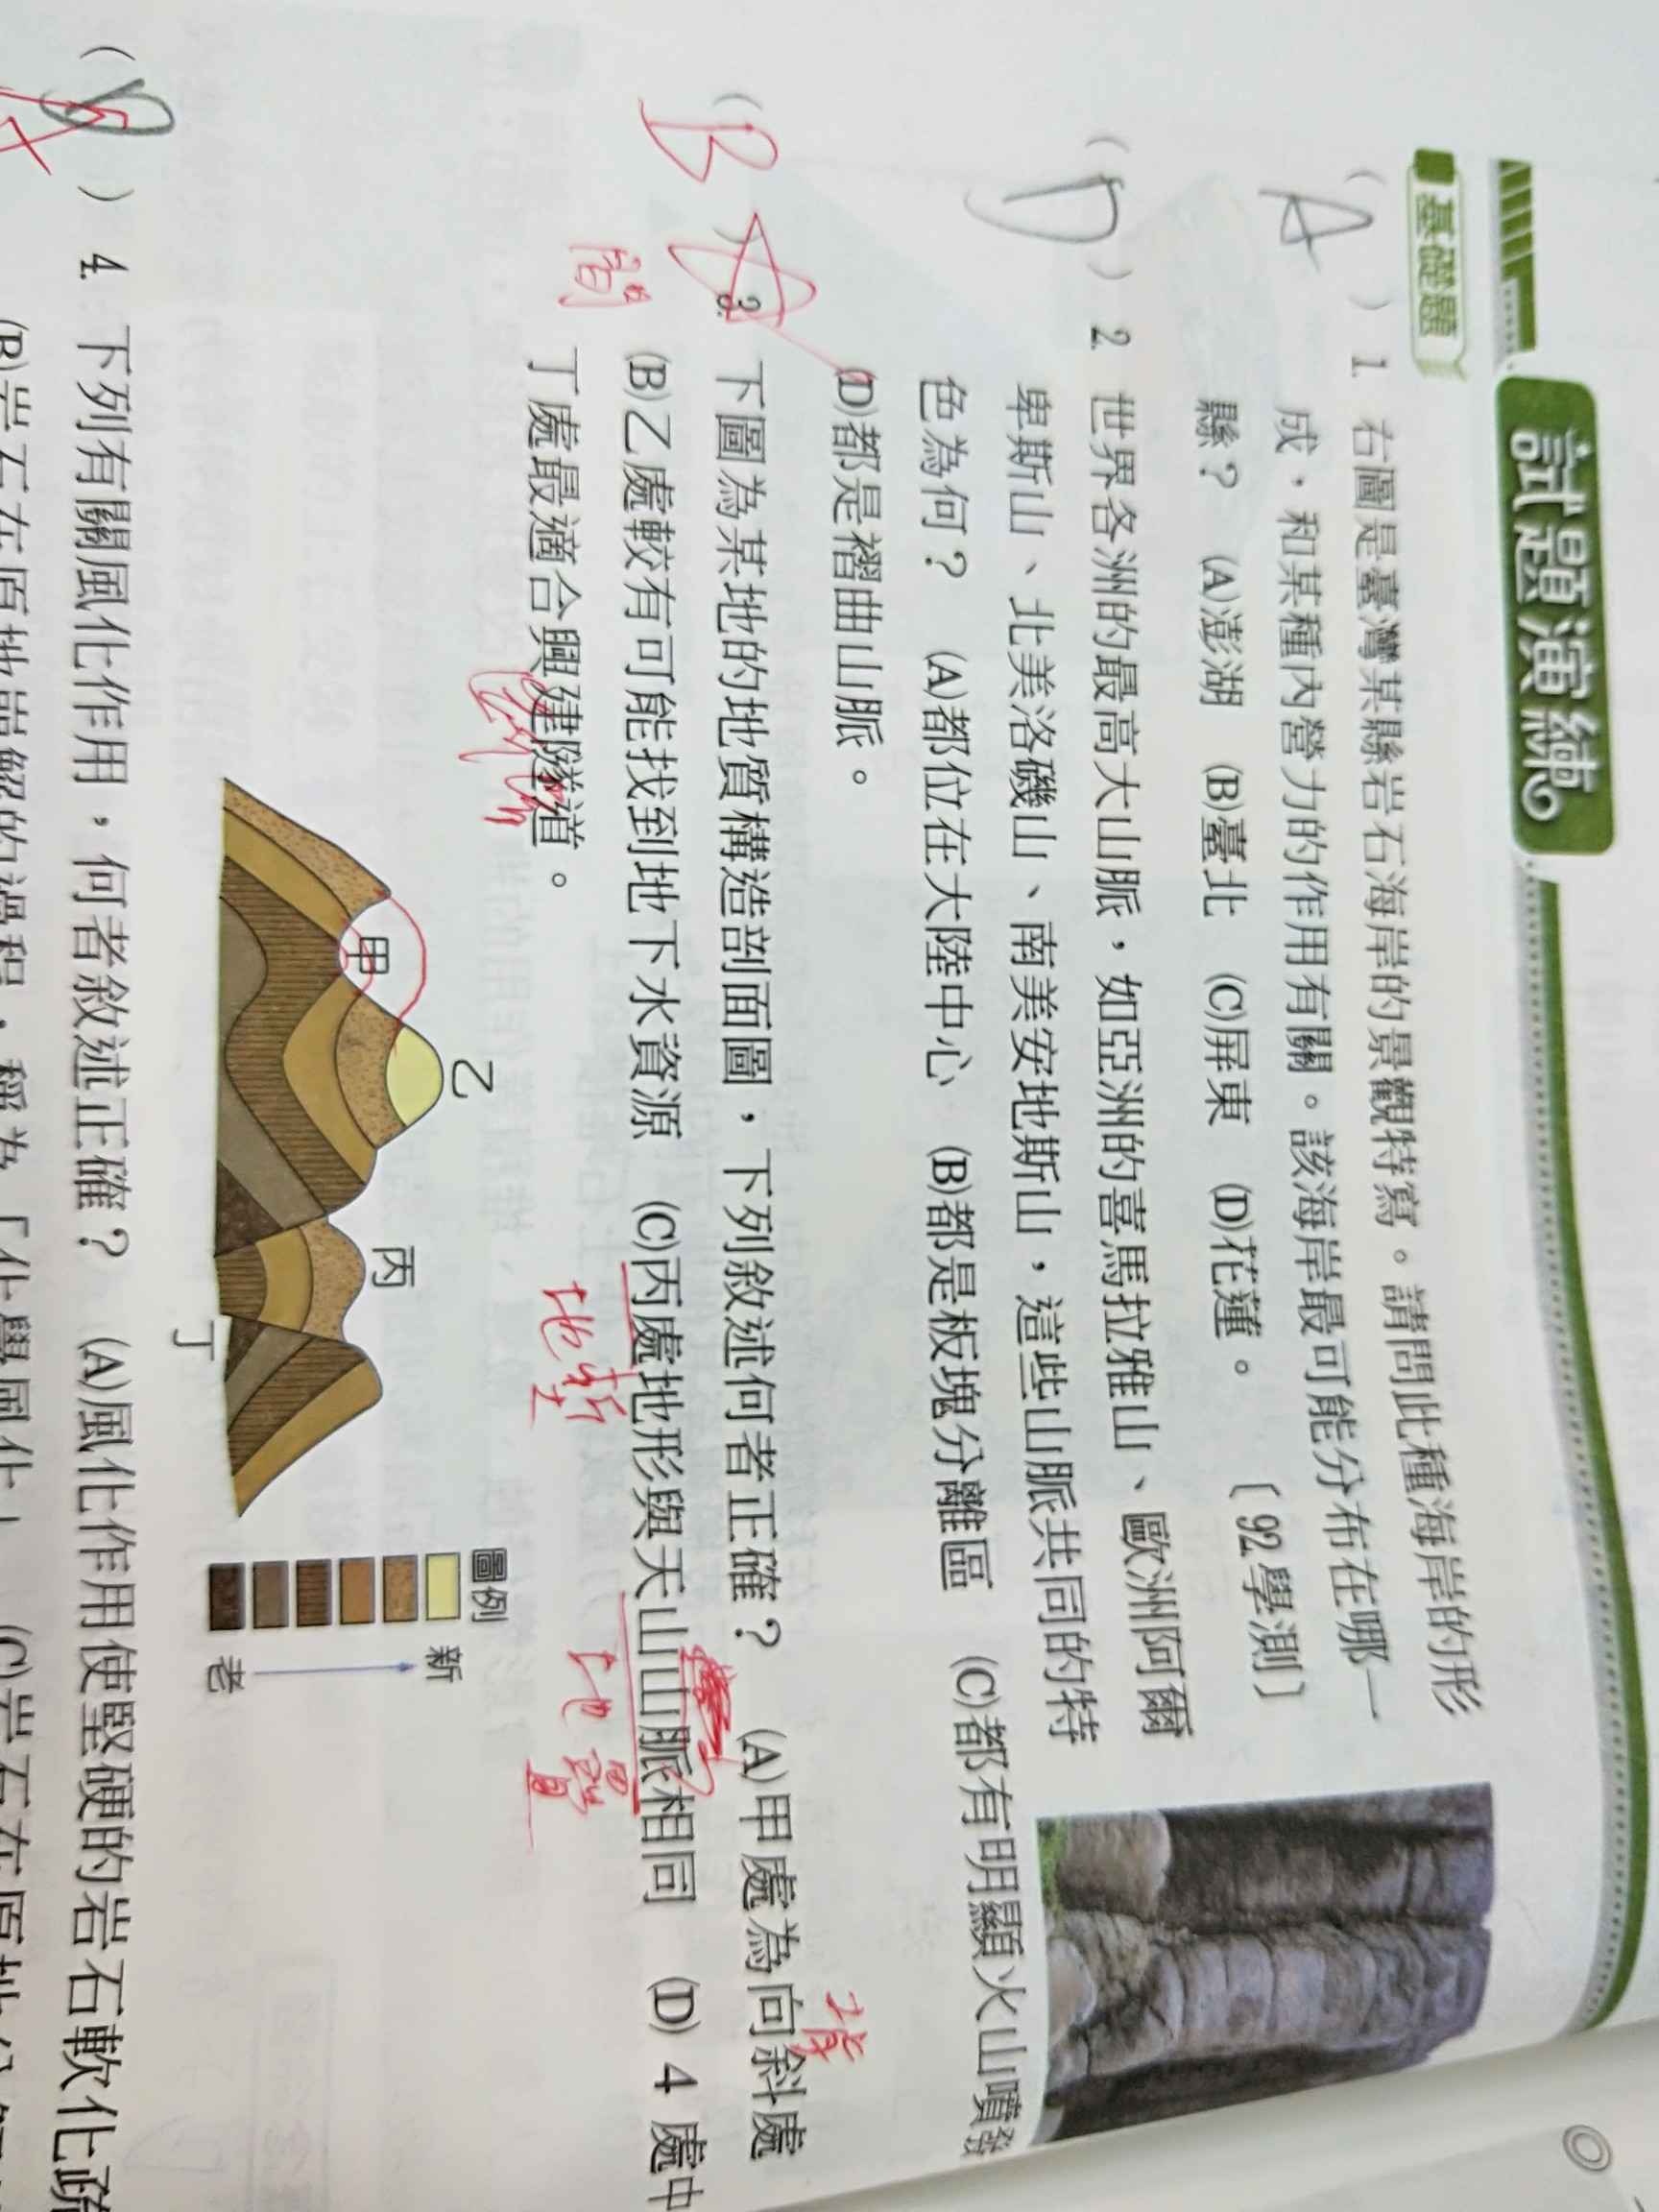 試題演練
基礎題
( A ) 1. 右圖是臺灣某縣岩石海岸的景觀特寫。請問此種海岸的形
成,和某種內營力的作用有關。該海岸最可能分布在哪一
縣? (A)澎湖 (B)臺北 (C)屏東 (D)花蓮。 〔92.學測〕
( D ) 2. 世界各洲的最高大山脈,如亞洲的喜馬拉雅山、歐洲阿爾
卑斯山、北美洛磯山、南美安地斯山,這些山脈共同的特
色為何? (A)都位在大陸中心 (B)都是板塊分離區 (C)都有明顯火山噴發
(D)都是褶曲山脈。
背
( B ) 3. 下圖為某地的地質構造剖面圖,下列敘述何者正確? (A)甲處為向斜處
(B)乙處較有可能找到地下水資源 (C)丙處地形與天山山脈相同 (D) 4 處中
地塹
地壘
丁處最適合興建隧道。
乙
甲
丙
丁
圖例
新
老
) 4. 下列有關風化作用,何者敘述正確? (A)風化作用使堅硬的岩石軟化疏
(B)岩石在原地崩解的過程,稱為「化學風化」 (C)岩石在原地分解